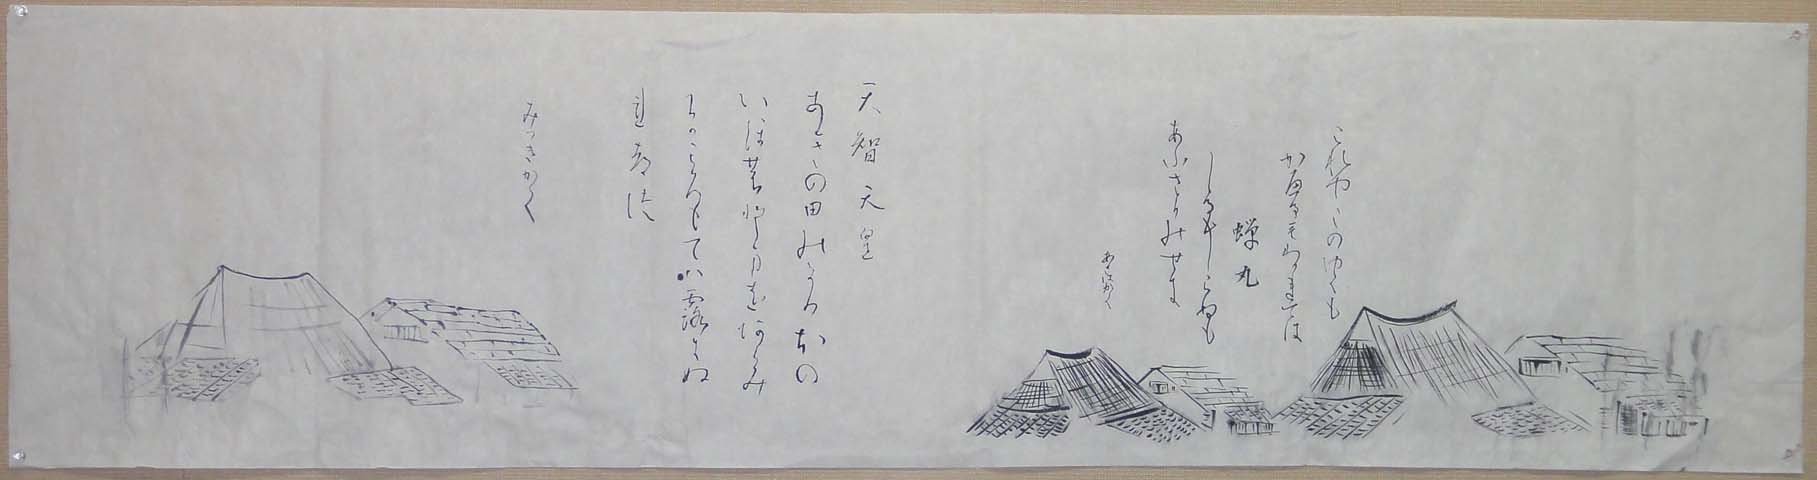 これやこのゆくも
かへるもわかれては
蝉丸
しるもしらぬも
あふさかのせき
天智天皇
あきの田のかりほの
いほのとまをあらみ
わかころもてハ露にぬ
れつつ
みつきかく